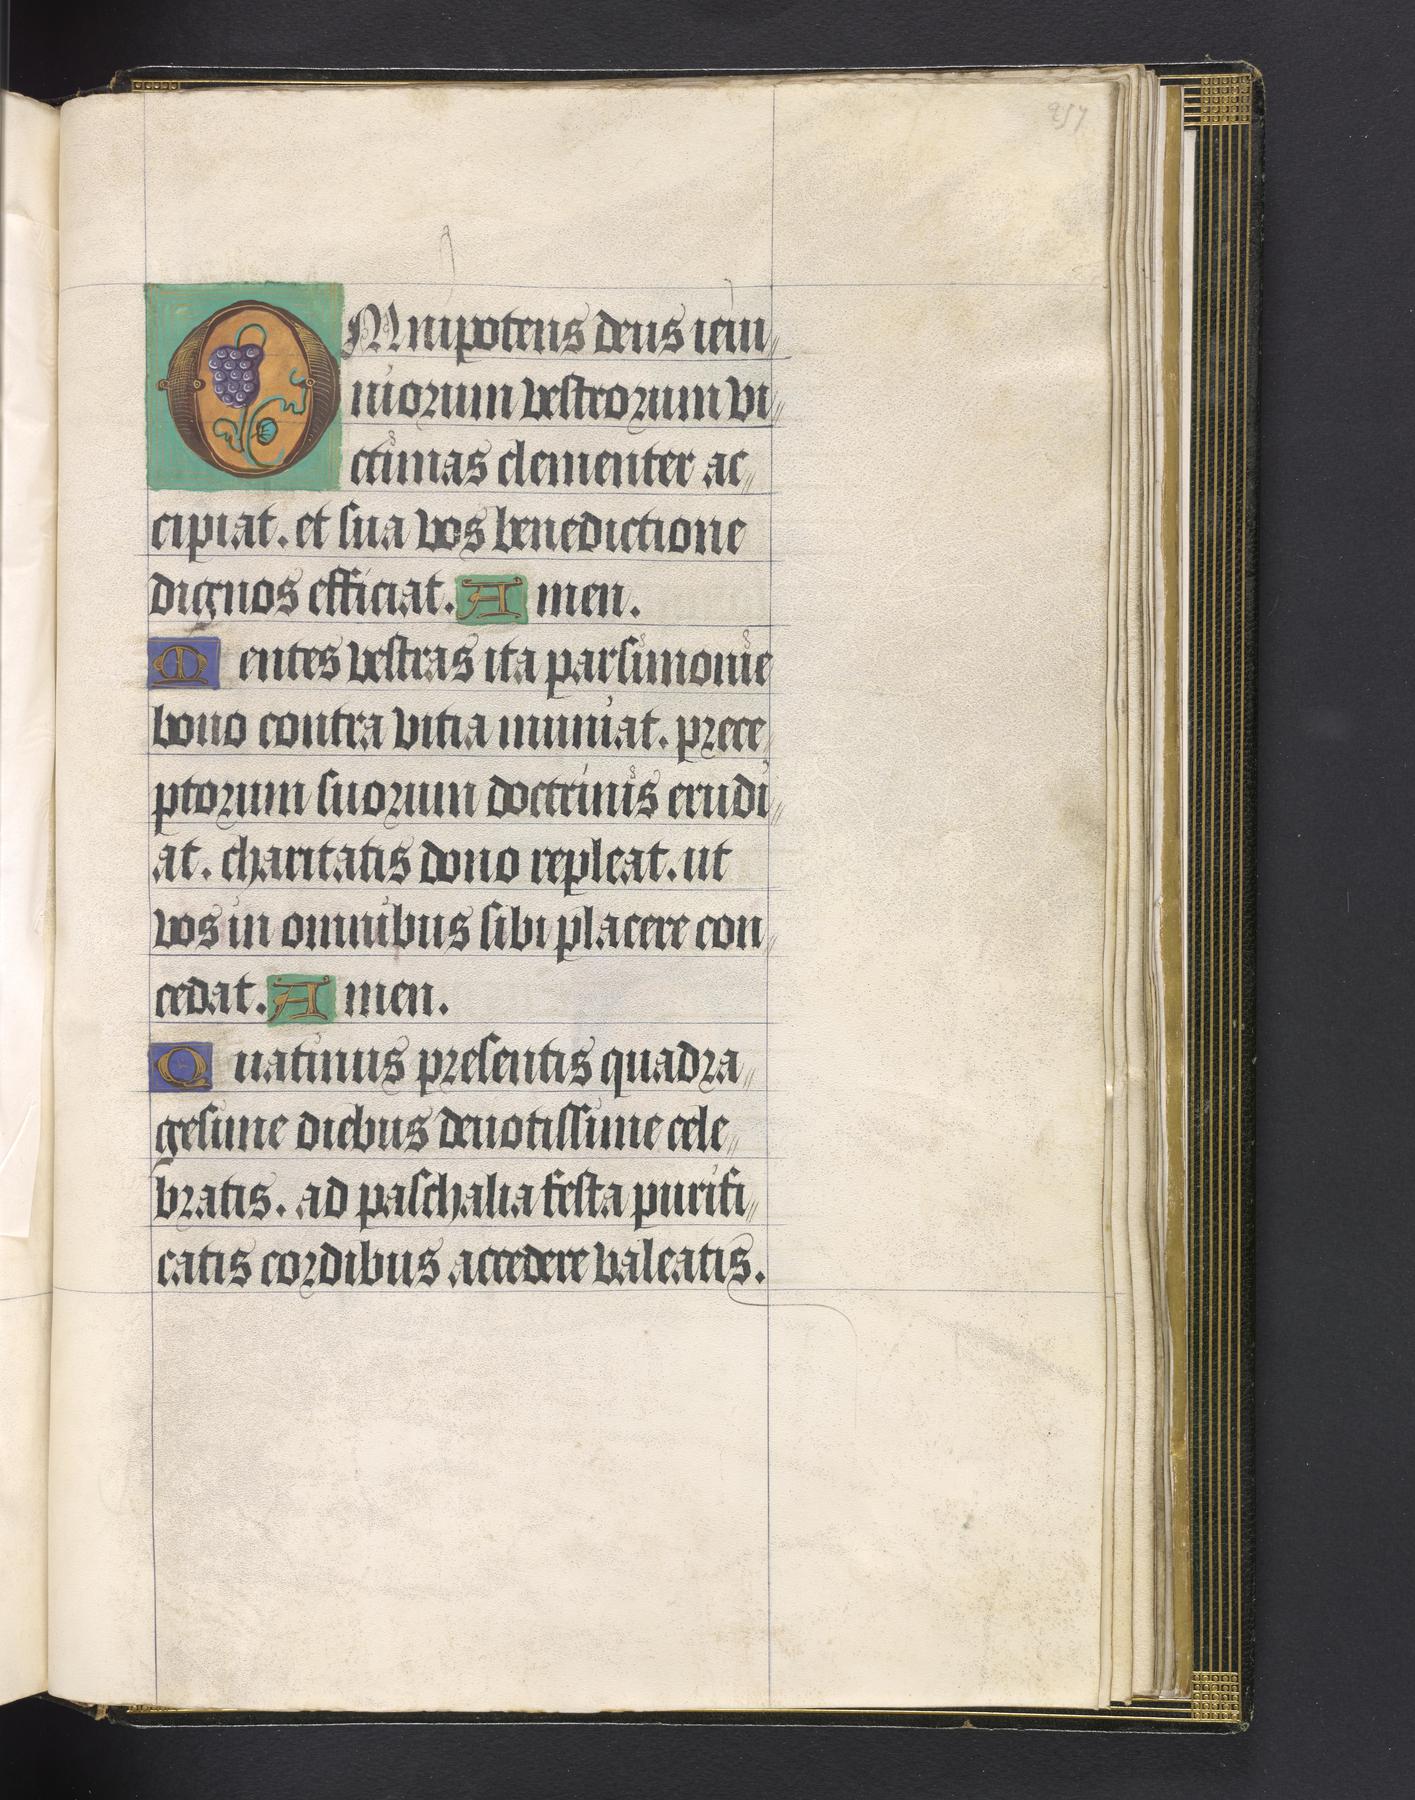 257
OMnipotens deus ieiu//
niorum vestrorum vi//
ctimas clementer ac//
cipiat. et sua vos benedictione
dignos efficiat. Amen.
Mentes vestras ita parsimonie
bono contra vitia muniat. prece/
ptorum suorum doctrinis erudi//
at. charitatis dono repleat. ut
vos in omnibus sibi placere con//
cedat. Amen.
Quatinus presentis quadra//
gesime diebus deuotissime cele//
bratis. ad paschalia festa purifi//
catis cordibus accedere valeatis.